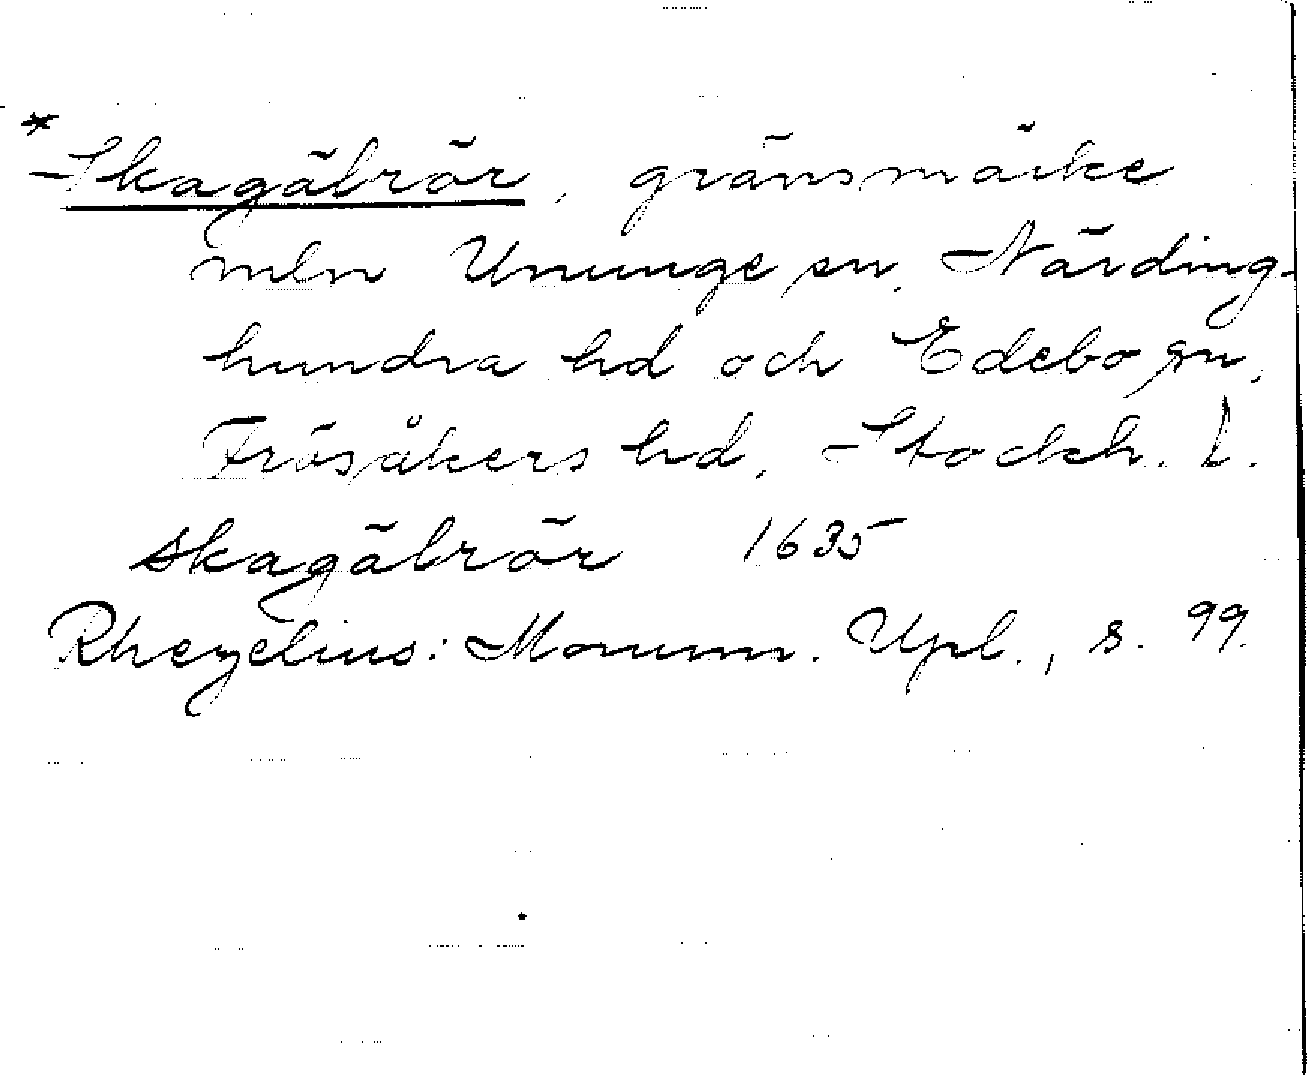 *Skagäbrör, gränsmärke
mln Ununge sn, Närding-
hundra hd och Edebo sn,
Frösåkers hd, Stockh. l.
skagäbrör 1635
Rhezelius: Monum. Upl., s. 99.